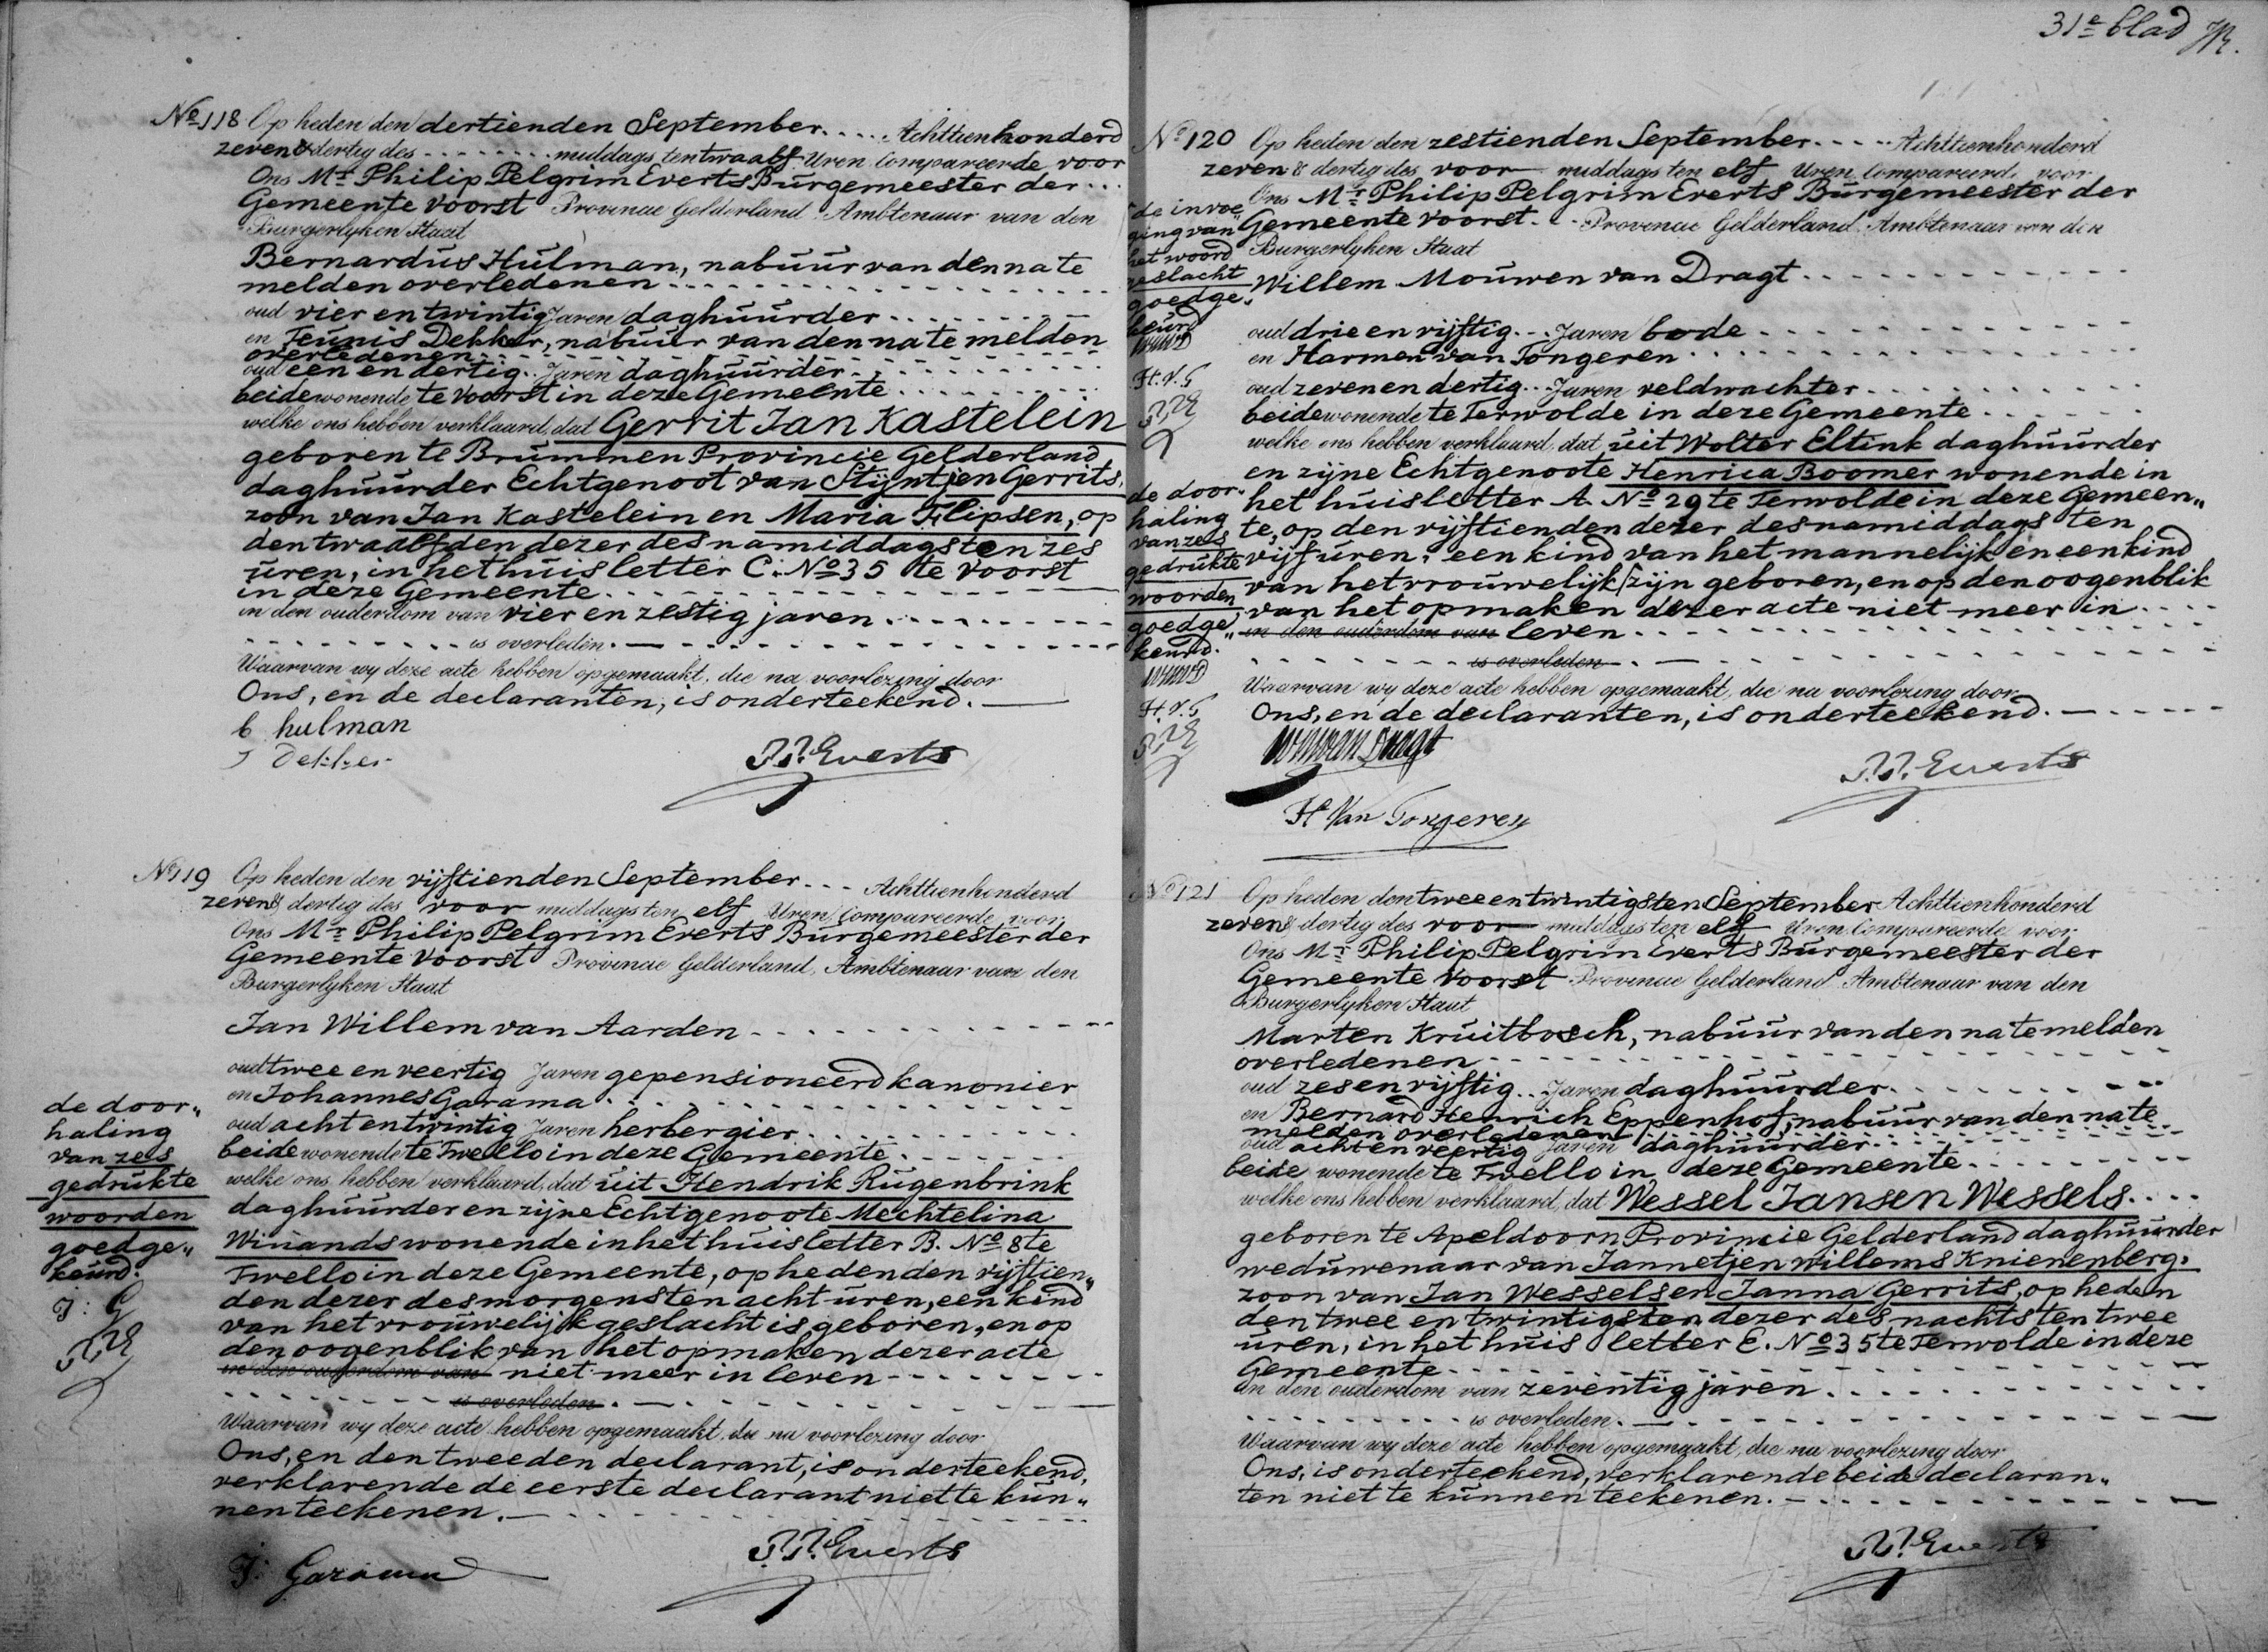 No 118 Op heden den dertienden September .... Achttienhonderd
zeven & dertig des ........ middags ten twaalf Uren Compareerde voor
Ons Mr Philip Pelgrim Everts Burgemeester der ...
Gemeente Voorst Provincie Gelderland Ambtenaar van den
Burgerlyken Staat
Bernardus Hulman, nabuur van den na te
melden overledenen
oud vier en twintig Jaren daghuurder
en Teunis Dekker, nabuur van den na te melden
overledenen
oud een en dertig .. Jaren daghuurder
beide wonende te Voorst in deze Gemeente
welke ons hebben verklaard, dat Gerrit Jan Kastelein
geboren te Brummen Provincie Gelderland
daghuurder Echtgenoot van Stijntjen Gerrits,
zoon van Jan Kastelein en Maria Flipsen, op
den twaalfden dezer des namiddags ten zes
uren, in het huis letter C. No 35 te Voorst
in deze Gemeente
in den ouderdom van vier en zestig jaren
is overleden.
Waarvan wy deze acte hebben opgemaakt, die na voorlezing door
Ons, en de declaranten, is onderteekend.
b hulman
T Dekker
P.P. Everts
No 119 Op heden den vijftienden September ... Achttienhonderd
zeven & dertig des voor middags ten elf Uren Compareerde voor
Ons Mr Philip Pelgrim Everts Burgemeester der
Gemeente Voorst Provincie Gelderland, Ambtenaar van den
Burgerlyken Staat
Jan Willem van Aarden
oud twee en veertig Jaren gepensioneerd kanonier
en Johannes Garama
oud acht en twintig Jaren herbergier
beide wonende te Twello in deze Gemeente
welke ons hebben verklaard, dat uit Hendrik Rugenbrink
daghuurder en zijne Echtgenoote Mechtelina
Winands wonende in het huis letter B. No 8 te
Twello in deze Gemeente, op heden den vijftien„
den dezer des morgens ten acht uren, een kind
van het vrouwelijk geslacht is geboren, en op
den oogenblik van het opmaken dezer acte
in den ouderdom van niet meer in leven
is overleden.
Waarvan wy deze acte hebben opgemaakt, die na voorlezing door
Ons, en den tweeden declarant, is onderteekend,
verklarende de eerste declarant niet te kun„
nen teekenen.
de door„
haling
van zes
gedrukte
woorden
goedge„
keurd.
J: G
PPE
J: Garama
P.P. Everts
31e blad
No 120 Op heden den zestienden September .... Achttienhonderd
zeven & dertig des voor middags ten elf Uren Compareerde voor
Ons Mr Philip Pelgrim Everts Burgemeester der
Gemeente Voorst. Provincie Gelderland Ambtenaar van den
Burgerlyken Staat
Willem Mouwen van Dragt
oud drie en vijftig ... Jaren bode
en Harmen van Tongeren
oud zeven en dertig ... Jaren veldwachter
beide wonende te Terwolde in deze Gemeente
welke ons hebben verklaard, dat uit Wolter Eltink daghuurder
en zijne Echtgenoote Henrica Boomer wonende in
het huis letter A. No 29 te Terwolde in deze Gemeen„
te, op den vijftienden dezer des namiddags ten
vijf uren, een kind van het mannelijk en een kind
van het vrouwelijk zijn geboren, en op den oogenblik
van het opmaken dezer acte niet meer in
in den ouderdom van leven
is overleden.
Waarvan wy deze acte hebben opgemaakt, die na voorlezing door
Ons, en de declaranten, is onderteekend.
de invoe„
ging van
het woord
geslacht
goedge„
keurd
WMVD
H.V.T
PPE
de door„
haling
van zes
gedrukte
woorden
goedge„
keurd.
WMVD
H.V.T
PPE
WMvan Dragt
P.P. Everts
H Van Tongeren
No 121 Op heden den twee en twintigsten September Achttienhonderd
zeven & dertig des voor middags ten elf Uren Compareerde voor
Ons Mr Philip Pelgrim Everts Burgemeester der
Gemeente Voorst Provincie Gelderland Ambtenaar van den
Burgerlyken Staat
Marten Kruitbosch, nabuur van den na te melden
overledenen
oud zes en vijftig .. Jaren daghuurder
en Bernard Henrich Eppenhof, nabuur van den na te
melden overledenen
oud acht en veertig Jaren daghuurder
beide wonende te Twello in deze Gemeente
welke ons hebben verklaard, dat Wessel Jansen Wessels
geboren te Apeldoorn Provincie Gelderland daghuurder
weduwenaar van Jannetjen Willems Knienenberg,
zoon van Jan Wessels en Janna Gerrits, op heden
den twee en twintigsten dezer des nachts ten twee
uren, in het huis letter E. No 35 te Terwolde in deze
Gemeente
in den ouderdom van zeventig jaren
is overleden.
Waarvan wy deze acte hebben opgemaakt, die na voorlezing door
Ons, is onderteekend, verklarende beide declaran„
ten niet te kunnen teekenen.
P.P. Everts